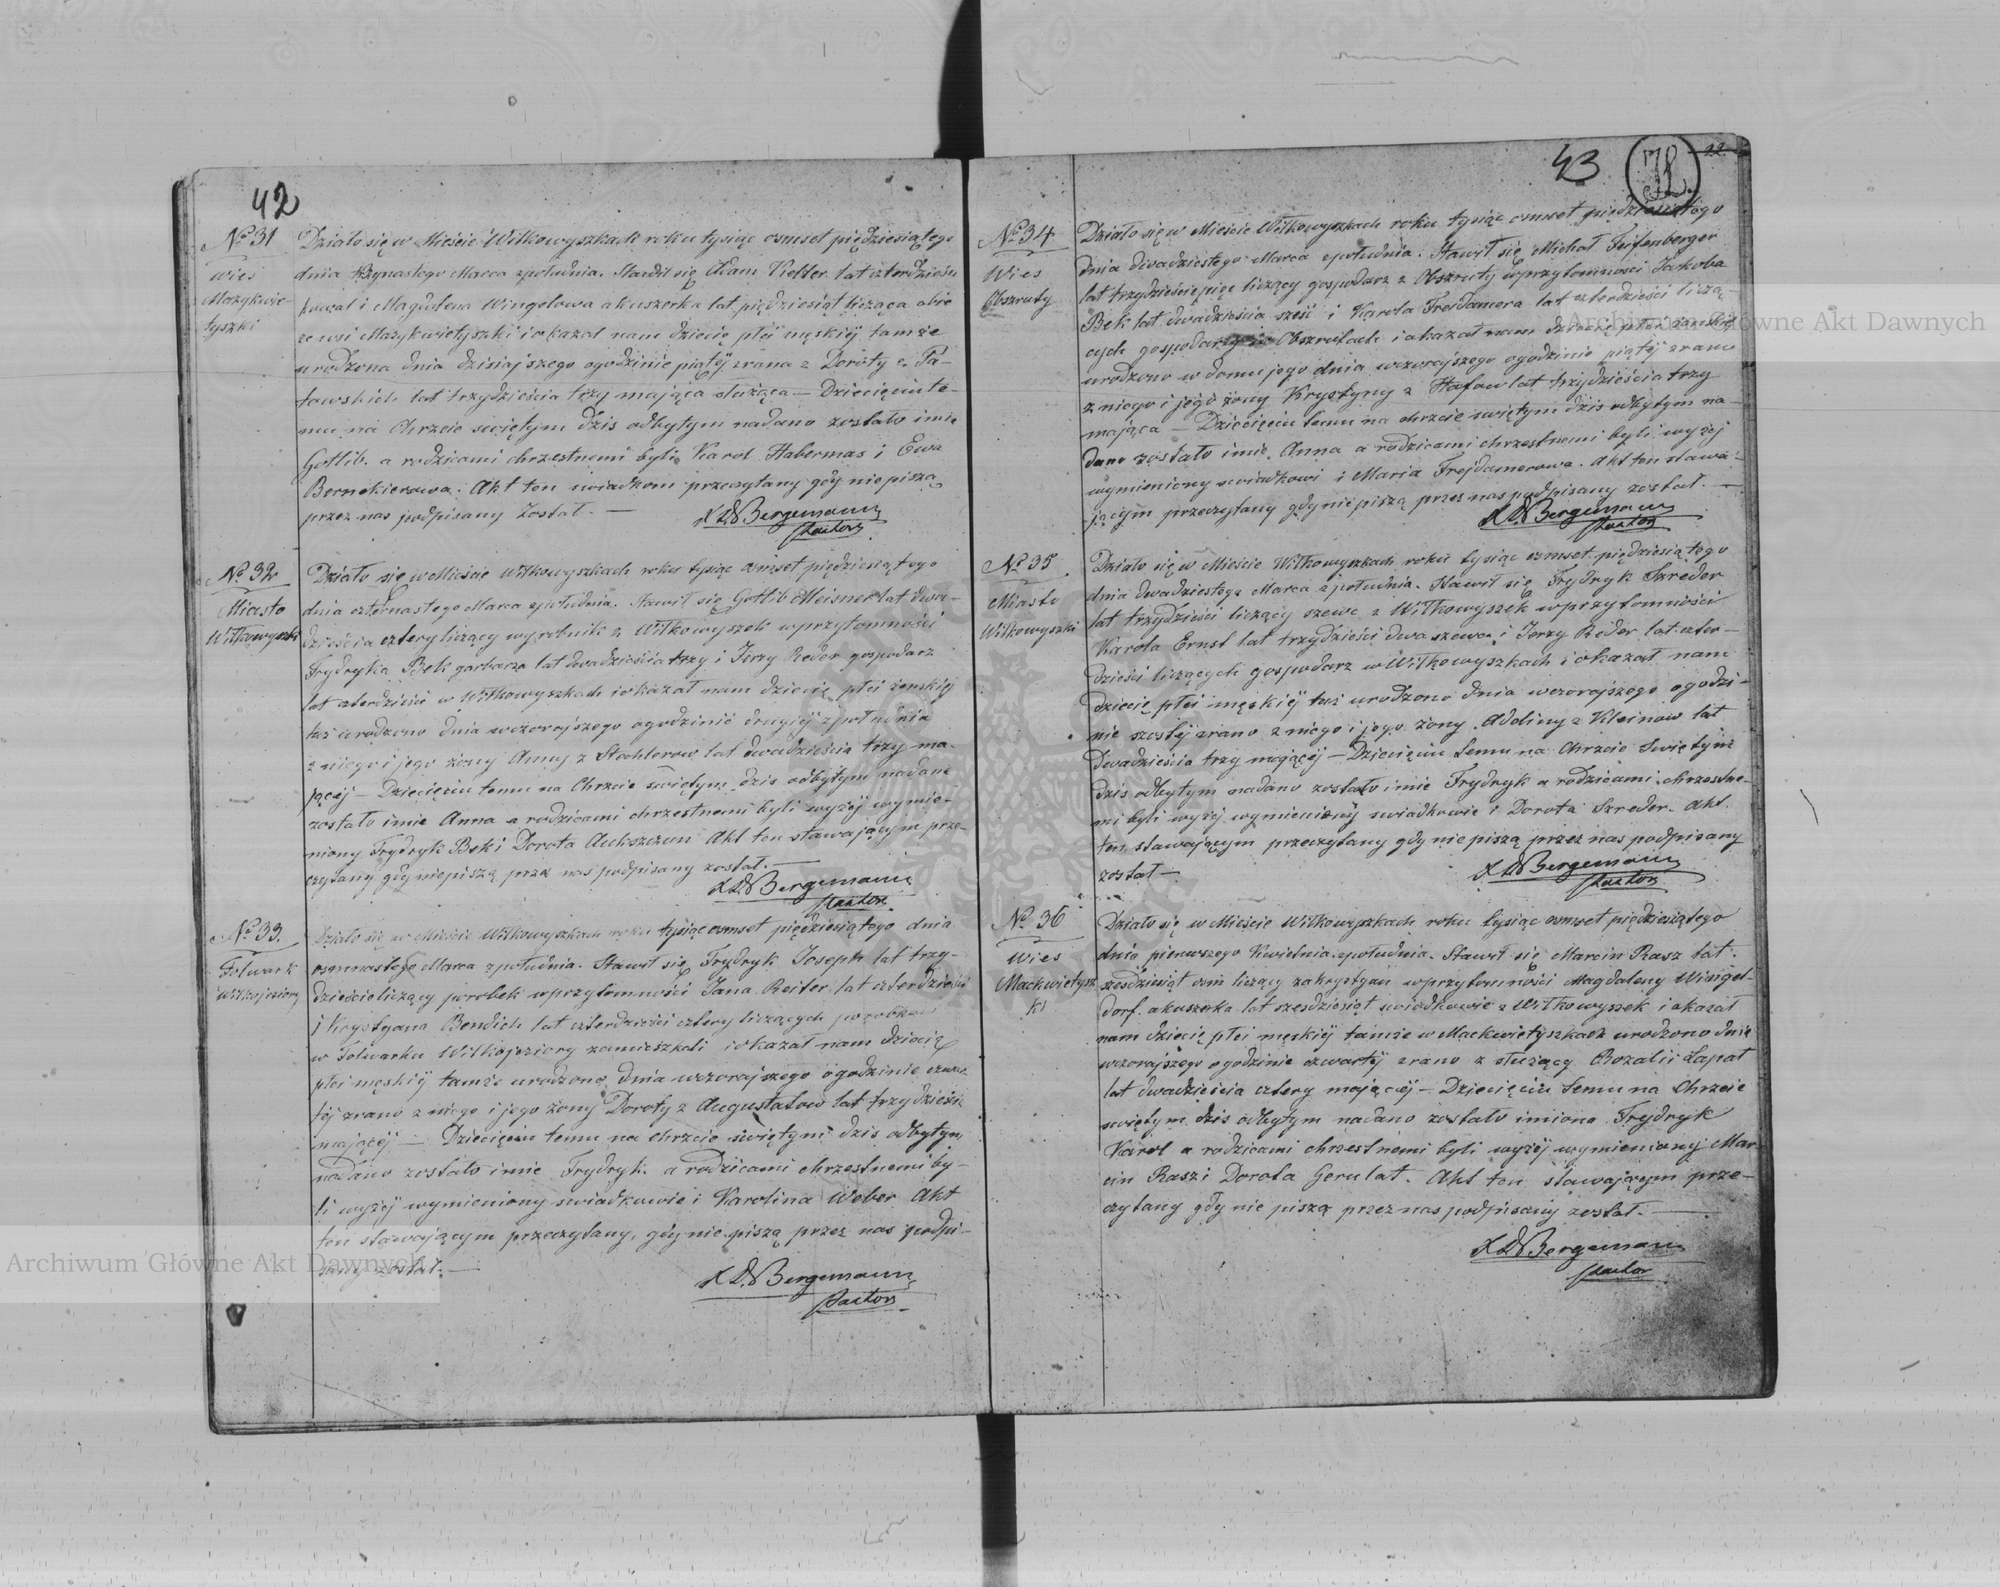 42
No 31
Wieś
Mażykwie
tyszki
Działo się w Mieście Wiłkowyszkach roku tysiąc osmset pięćdziesiątego
dnia trzynastego Marca z południa. Stawił się Adam Keller lat czterdzieści
kowal i Magdalena Wingelowa akuszerka lat pięćdziesiąt licząca obie
ze wsi Mażykwietyszki i okazał nam dziecię płci męskiéj tamże
urodzone dnia dzisiajszego o godzinie piątéj zrana z Doroty z
lat trzydzieścia trzy mająca służąca — Dziecięciu te-
mu na Chrzcie świętym dziś odbytym nadano zostało imie
Gotlib. a rodzicami chrzestnemi byli Karol Habermas i Ewa
Bernekierowa. Akt ten świadkom przeczytany gdy niepiszą
przez nas podpisany został. —
Bergemann
Pastor
No 32
Miasto
Wiłkowyszki
Działo się w Mieście Wiłkowyszkach roku tysiąc osmset pięćdziesiątego
dnia czternastego Marca z południa. Stawił się Gotlib Meisner lat dwa-
dzieścia cztery liczący wyrobnik z Wiłkowyszek w przytomności
Frydryka Bek garbarza lat dwadzieścia trzy i Jerzy Reder gospodarz
lat czterdzieści w Wiłkowyszkach i okazał nam dziecię płci żeńskiéj
tuż urodzone dnia wczorajszego o godzinie drugiéj z południa
z niego i jego żony Anny z Stachlerow lat dwadzieścia trzy ma-
jącéj — Dziecięciu temu na Chrzcie świętym dziś odbytym nadane
zostało imie Anna a rodzicami chrzestnemi byli wyżéj wymie-
niony Frydryk Bek i Dorota Aukszczun Akt ten stawającym prze-
czytany gdy niepiszą przez nas podpisany został. —
Bergemann
Pastor
No 33.
Folwark
Wiłkojeziory
Działo się w Mieście Wiłkowyszkach roku tysiąc osmset pięćdziesiątego dnia
osmnastego Marca z południa. Stawił się Frydryk Joseph lat trzy-
dzieście liczący parobek w przytomności Jana Reiter lat czterdzieści
i Krystyana Bendich lat czterdzieści cztery liczących parobków
w Folwarku Wiłkojeziory zamieszkali i okazał nam dziecię
płci męskiéj tamże urodzone dnia wczorajszego o godzinie czwar
téj zrana z niego i jego żony Doroty z Augustatow lat trzydzieści
mającéj — Dziecięciu temu na chrzcie świętym dziś odbytym
nadano zostało imie Frydryk. a rodzicami chrzestnemi by-
li wyżéj wymieniony świadkowie i Karolina Weber Akt
ten stawającym przeczytany, gdy nie piszą przez nas podpi-
sany został. —
Bergemann
Pastor
43
22
No 34
Wieś
Obszruty
Działo się w Mieście Wiłkowyszkach roku tysiąc osmset pięćdziesiątego
dnia dwadziestego Marca z południa. Stawił się Michał Feifenberger
lat trzydzieście pięć liczący gospodarz z Obszruty w przytomności Jakoba
Bek lat dwadzieścia sześć i Karola Frejdamera lat czterdzieści liczą-
cych gospodarzy w Obszrutach i okazał nam dziecię płci żeńskiéj
urodzone w domu jego dnia wczorajszego o godzinie piątéj zrana
z niego i jego żony Krystyny z Hafow lat trzydzieścia trzy
mająca — Dziecięciu temu na chrzcie świętym dziś odbytym na-
dano zostało imie Anna a rodzicami chrzestnemi byli wyżej
wymieniony świadkowi i Maria Frejdamerowa. Akt ten stawa-
jącym przeczytany gdy nie piszą przez nas podpisany został. —
Bergemann
Pastor
No 35
Miasto
Wiłkowyszki
Działo się w Mieście Wiłkowyszkach roku tysiąc osmset pięćdziesiątego
dnia dwadziestego Marca z południa. Stawił się Frydryk Szreder
lat trzydzieści liczący szewc z Wiłkowyszek w przytomności
Karola Ernst lat trzydzieści dwa szewca i Jerzy Reder lat czter-
dzieści liczących gospodarz w Wiłkowyszkach i okazał nam
dziecię płci męskiéj tuż urodzono dnia wczorajszego o godzi-
nie szostéj zrano z niego i jego żony Adoliny z Kleinow lat
dwadzieścia trzy mającéj — Dziecięciu temu na Chrzcie Świętym
dziś odbytym nadano zostało imie Frydryk a rodzicami chrzestne-
mi byli wyżéj wymienieny świadkowie i Dorota Szreder. Akt
ten stawającym przeczytany gdy nie piszą przez nas podpisany
został —
Bergemann
Pastor
No 36
Wieś
Mackwietysz
ki
Działo się w Mieście Wiłkowyszkach roku tysiąc osmset pięćdziesiątego
dnia pierwszego Kwietnia z południa. Stawił się Marcin Rasz lat
sześdziesiąt osm liczący zakrystyan w przytomności Magdaleny Wisigel-
dorf. akuszerka lat sześdziesiąt świadkowie z Wiłkowyszek i okazał
nam dziecię płci męskiéj tamże w Mackwietyszkach urodzono dnia
wczorajszego o godzinie czwartéj zrano z służący Rozalii Łapat
lat dwadzieścia cztery mającéj — Dziecięciu temu na Chrzcie
świętym dziś odbytym nadano zostało imiona Frejdryk
Karol a rodzicami chrzestnemi byli wyżéj wymieniony Mar
cin Rasz i Dorota Gerulat. Akt ten stawającym prze-
czytany gdy nie piszą przez nas podpisany został. —
Bergemann
Pastor
Archiwum Główne Akt Dawnych
Archiwum Główne Akt Dawnych